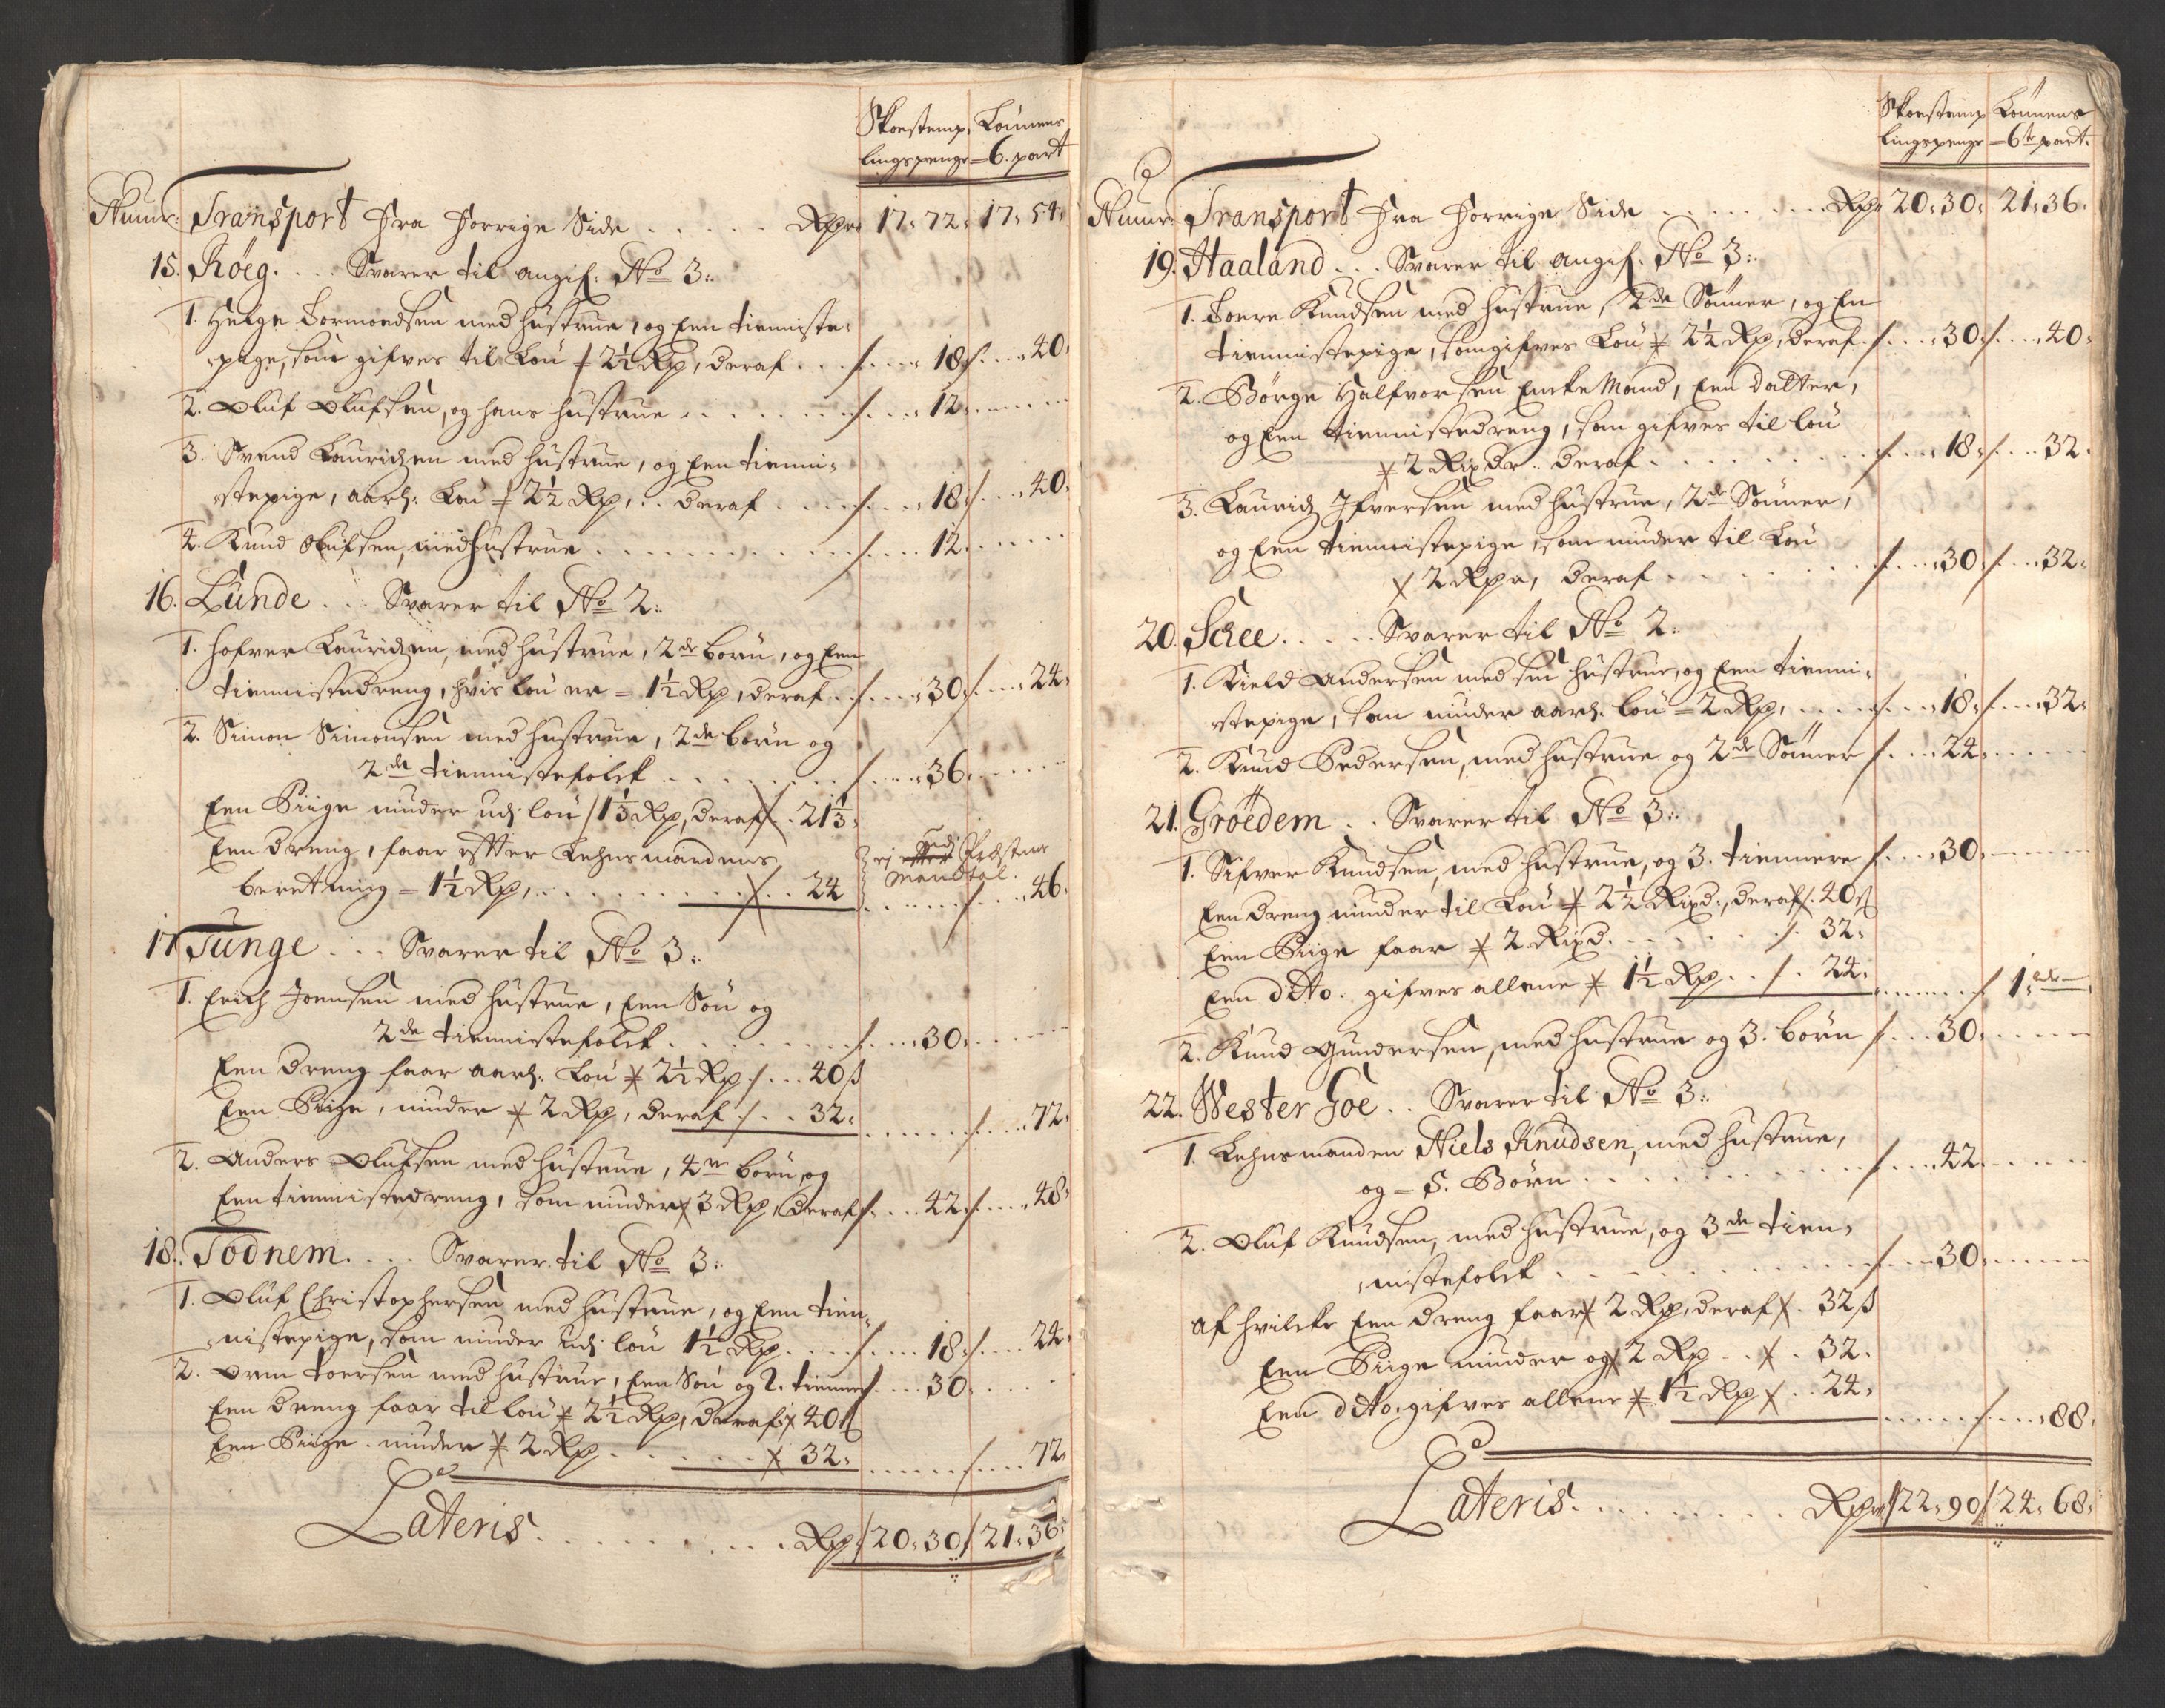 Skoestemp, Lønnens
lingspenge = 6. part
Numr: Transport fra forrige Side ..... Rdr 17: 72: 17: 54:
15. Røeg. ... Svarer til angif: No 3:
1. Helge Tormondsen med hustrue, og Een tienniste-
pige, som gifves til Løn 2½ Rdr, deraf ... 18: 40:
2. Oluf Olufsen, og hans hustrue ....... 12:
3. Svend Lauridzen med hustrue, og Een tienni-
stepige, aarl: Løn 2½ Rdr, .. deraf .... 18: 40:
4. Knud Olufsen, med hustrue ........ 12.
16. Lunde ... Svarer til No 2:
1. Lauridzen, med hustrue, 2de børn, og Een
tiennistedreng, hvis løn er = 1½ Rdr, deraf .. 30: 24:
2. Simon Simonsen med hustrue, 2de børn og
2de tiennistefolck ....... 36.
Een Piige niuder udj løn 1⅓ Rdr, deraf . 21⅓:
Een dreng, faar efter Lehnsmandens
beretning = 1½ Rdr, ........ 24 46.
ej udj Præstens
Mandtal.
17 Tunge ... Svarer til No 3:
1. Erich Joensen med hustrue, Een Søn og
2de tiennistefolck ....... 30:
Een dreng faar aarl: Løn 2½ Rdr ... 40 ß
Een Piige, niuder 2 Rdr, deraf .. 32: 72:
2. Anders Olufsen med hustrue, 4re børn, og
Een tiennistedreng, som niuder 3 Rdr, deraf ... 42 48:
18. Todnem .... Svarer til No 3:
1. Oluf Christophersen med hustrue, og Een tien-
nistepige, som niuder udj løn 1½ Rdr .... 18: 24:
2. Orm Toersen med hustrue, Een Søn og 2. tiennere ... 30.
Een dreng faar til løn 2½ Rdr, deraf 40 ß
Een Piige niuder 2 Rdr ...... 32: 72:
Lateris .......... Rdr 20: 30 21: 36:
Skoestemp Lønnens
lingspenge = 6te part.
Numr: Transport fra forrige Side ....... Rdr 20: 30: 21: 36.
19. Haaland ... Svarer til angif: No 3:
1. Toere Knudsen med hustrue, 2de Sønner, og En
tiennistepige, som gifves Løn 2½ Rdr, deraf .. 30 40:
2. Børge Halfvorsen Encke Mand, Een datter,
og Een tiennistedreng, som gifves til løn
2 Rixdr. deraf ........ 18: 32.
3. Lauridz Ifversen med hustrue, 2de Sønner,
og Een tiennistepige, som niuder til Løn
2 Rdr, deraf ....... 30 32:
20. Schee ..... Svarer til No 2:
1. Kield Andersen med sin hustrue, og Een tienni-
stepige, som niuder aarl: løn = 2 Rdr, .... 18: 32:
2. Knud Pedersen, med hustrue og 2de Sønner ... 24.
21. Grøedem .. Svarer til No 3:
1. Sifver Knudsen, med hustrue, og 3. tiennere .... 30.
Een dreng niuder til Løn 2½ Rixd:, deraf 40 ß
Een Piige faar 2 Rixd ...... 32:
Een dito. gifves allene 1½ Rdr .. 24: 1:
2. Knud Gundersen, med hustrue og 3. børn ... 30.
22. Wester Goe .. Svarer til No 3:
1. Lehnsmanden Niels Knudsen, med hustrue,
og = 5. Børn .......... 42.
2. Oluf Knudsen, med hustrue, og 3de tien-
nistefolck .......... 30:
af hvilcke Een dreng faar 2 Rdr, deraf . 32 ß
Een Piige niuder og 2 Rdr ... 32.
Een dito, gifves allene 1½ Rdr .. 24. 88.
Lateris ......... Rdr 22: 90 24: 68: